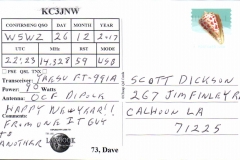 KC3JNW
CONFIRMING QSO DAY MONTH YEAR
W5WZ 26 12 2017
UTC MHZ RST MODE
22:23 14.328 59 USB
PSE QSL TNX
Transceiver: YAESU FT-991A
Power: 90 Watts
Antenna: OCF DIPOLE
HAPPY NEW YEAR!!
FROM ONE IT GUY
TO
ANOTHER
73, Dave
SCOTT DICKSON
267 JIM FINLEY RD
CALHOUN LA
71225